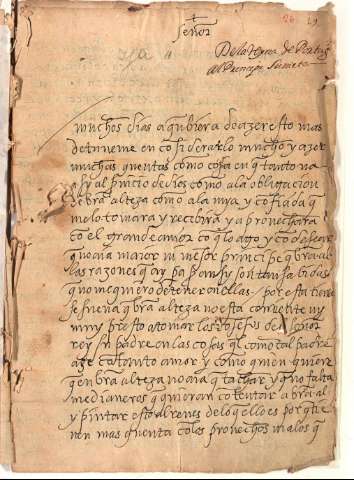 Señor
De la Reyna de Portug
al Principe
muchos dias a q ubiera de azer esto mas
detuueme en cōsiderarlo mucho y azer
muchas quentas como cosa en q tanto va
asy al seruicio de dios como a la obligacion
de bra alteza como a la mya y cōfiada q
me lo tomara y recibira y aprovechara
cō el grande amor cō q lo ago y cō desear
q no aia maior ni mejor principe q bra al
las razones q ay pa
q no me quiero detener en ellas por esta tierra
se suena q bra alteza no esta
muy presto a tomar los cōsejos del señor
rey su padre en las cosas q como tal padre
aze cō tanto amor y como quien quiere
q en bra alteza no aia q tachar y q no falta
medianeros q quieran cōtentar a bra al
y pintar esto al reues de lo q ello es porq tie
nen mas quenta cō los provechos malos q